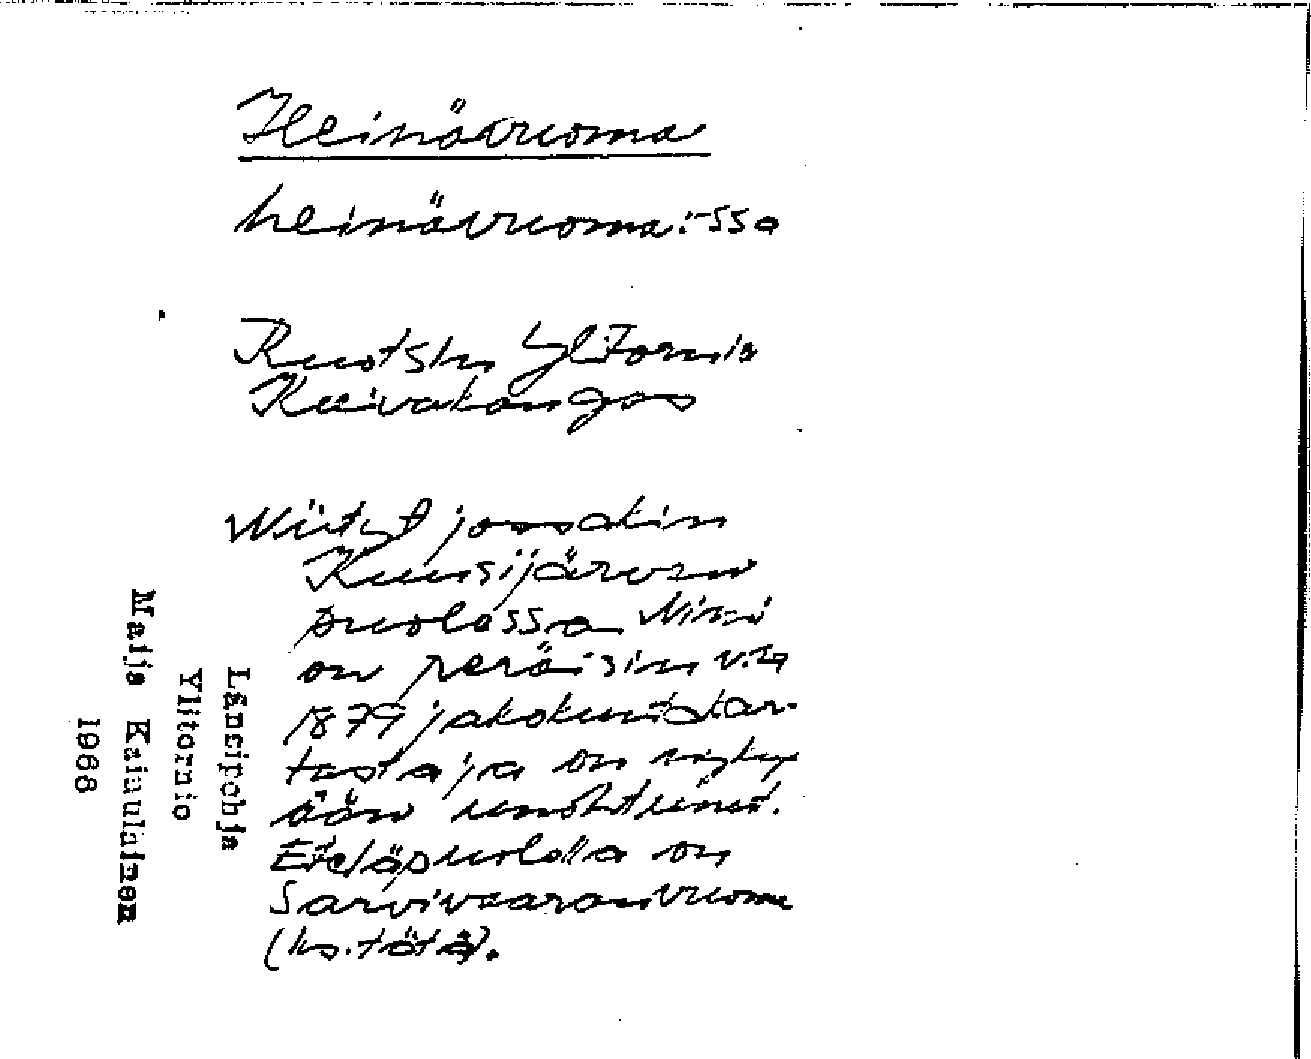 Heinävuoma
heinävuoma:-ssa
Ruotsin Ylitornio
Kuivakangas
Niityt jossakin
Kuusijärven
puolessa Nimi
on peräisin v:n
1879 jakokuntakar-
tasta ja on nyky-
ään unohtunut.
Eteläpuolella on
Sarvivaaranvuoma
(ks. tätä).
Länsipohja
Ylitornio
Maija Kainulainen
1968